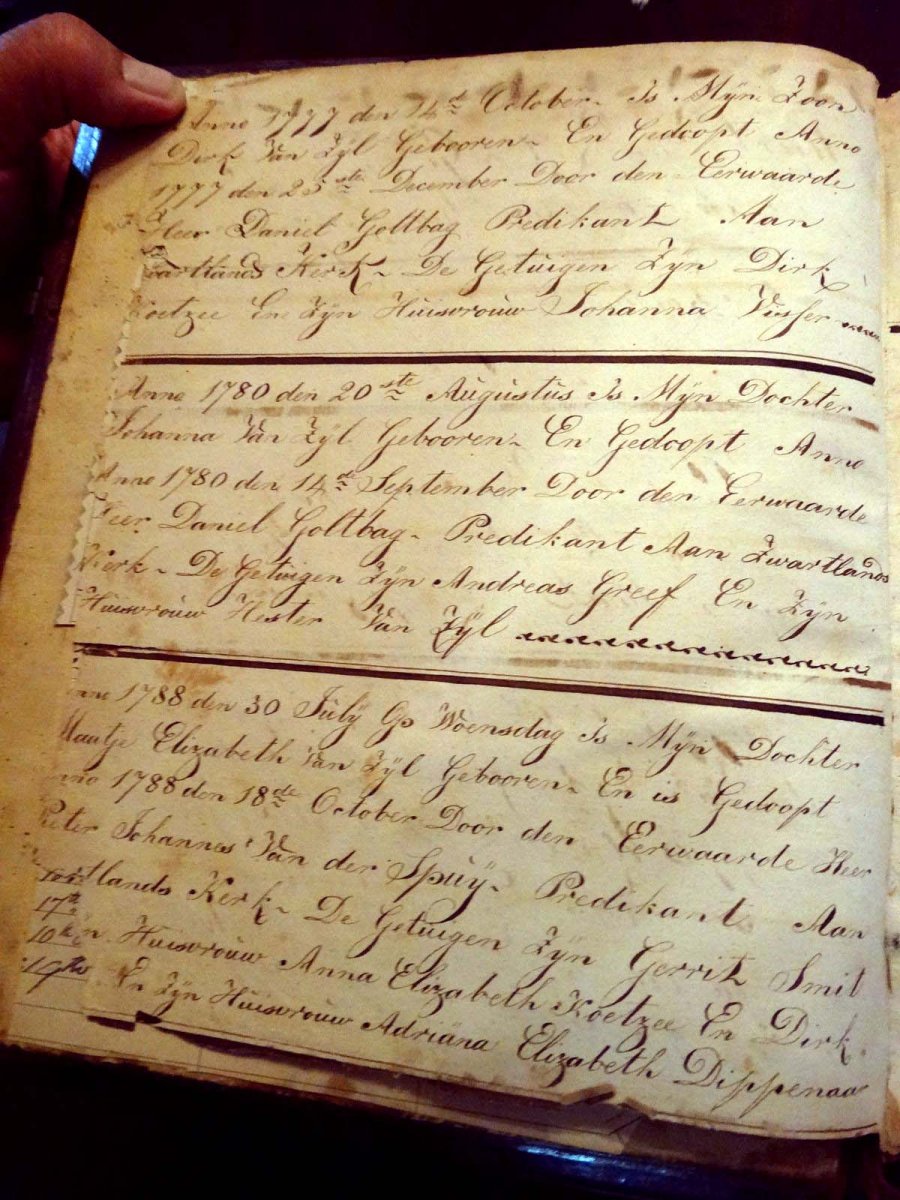 Anno 1777 den 14de October Is Mÿn Zoon
Dirk Van Zÿl Gebooren En Gedoopt Anno
1777 den 25ste December Door den Eerwaarde
Heer Daniel Goltbag Predikant Aan
Kerk De Getuigen Zÿn Dirk
Koetzee En Zÿn Huisvrouw Johanna Visser
Anno 1780 den 20ste Augustus Is Mÿn Dochter
Johanna Van Zÿl Gebooren En Gedoopt Anno
Anno 1780 den 14de September Door den Eerwaarde
Heer Daniel Goltbag Predikant Aan Zwartlands
Kerk De Getuigen Zÿn Andreas Greef En Zÿn
Huisvrouw Hester Van Zÿl
Anno 1788 den 30 Julÿ Op Woensdag Is Mÿn Dochter
Elizabeth Van Zÿl Gebooren En is Gedoopt
Anno 1788 den 18de October Door den Eerwaarde Heer
Pieter Johannes Van der Spuÿ Predikant Aan
tlands Kerk De Getuigen Zÿn Gerrit Smit
17
10 n Huisvrouw Anna Elizabeth Koetzee En Dirk
19 En Zÿn Huisvrouw Adriana Elizabeth Dippenaar